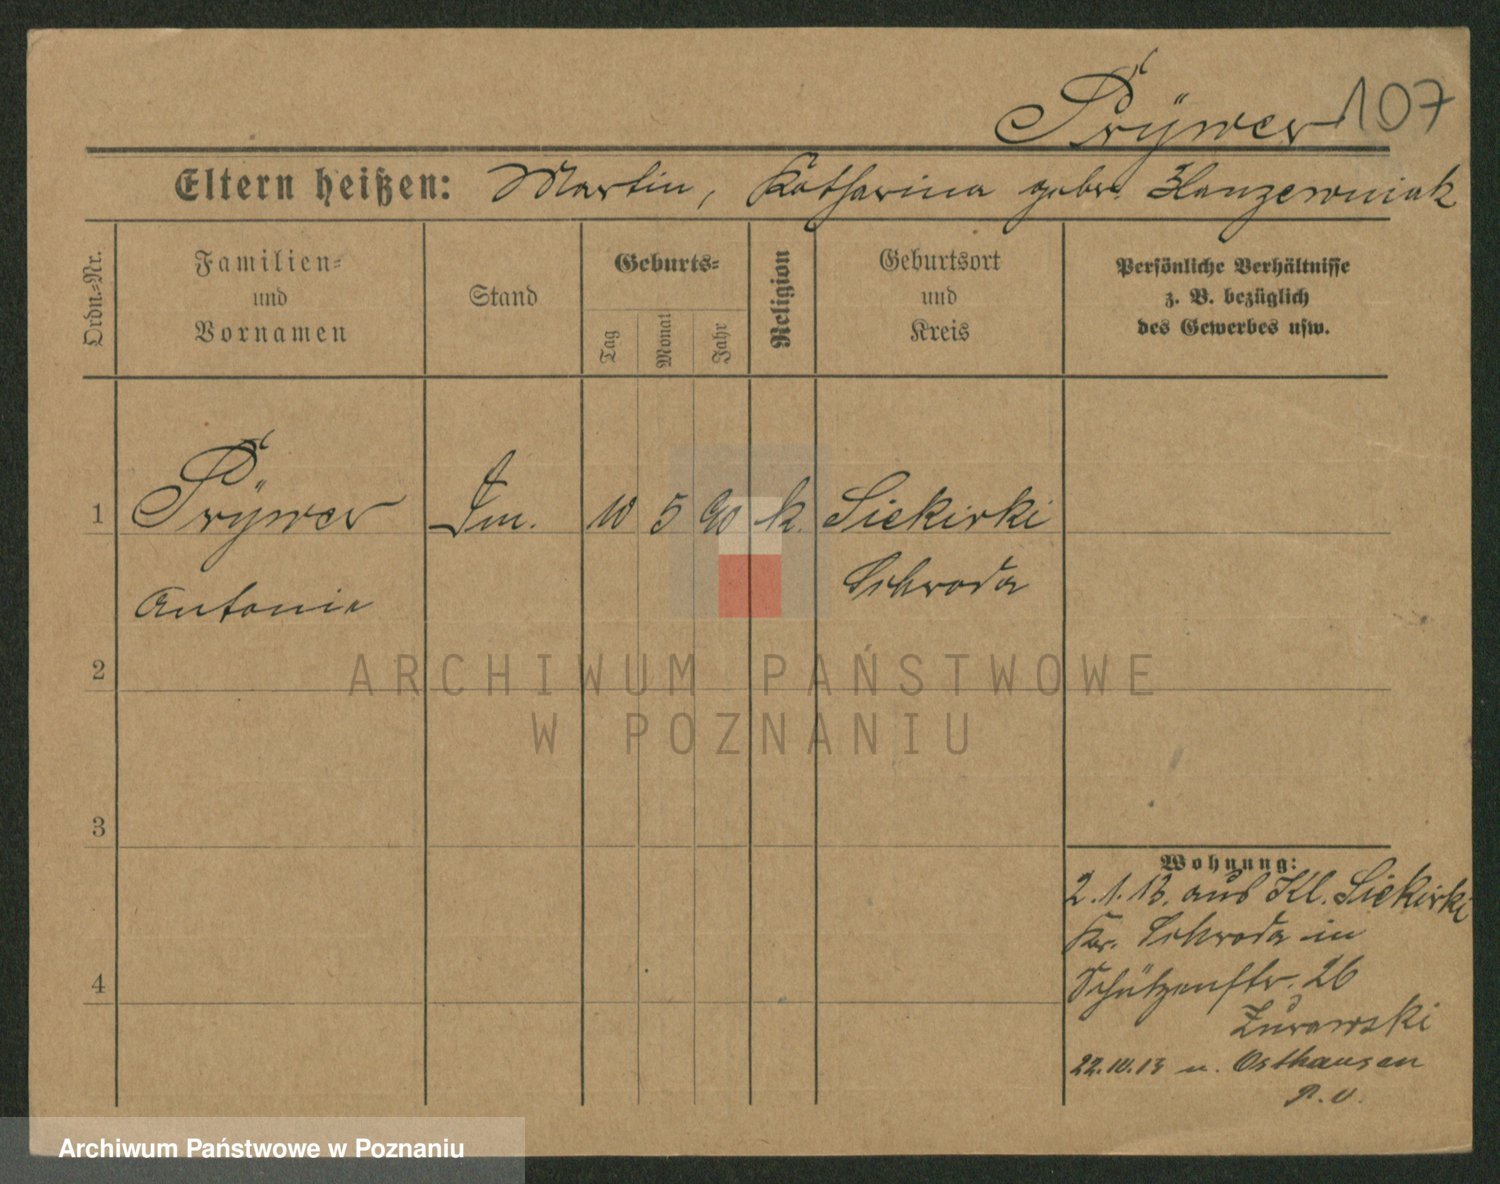 Prÿwer 107
Eltern heißen: Martin, Katharina gebr.
Ordn.-Nr.
Familien- und Vornamen
Stand
Geburts-
Tag
Monat
Jahr
Religion
Geburtsort und Kreis
Persönliche Verhältnisse
z. B. bezüglich
des Gewerbes usw.
1 Prÿwer 10 5 90 k. Siekirki
Antonie Schroda
2
3
4
Wohnung:
2.1.13. aus Kl. Siekirki
Kr. Schroda in
Schützenstr. 26
Zurawski
22.10.13 n. Osthausen
ARCHIWUM PAŃSTWOWE
W POZNANIU
Archiwum Państwowe w Poznaniu